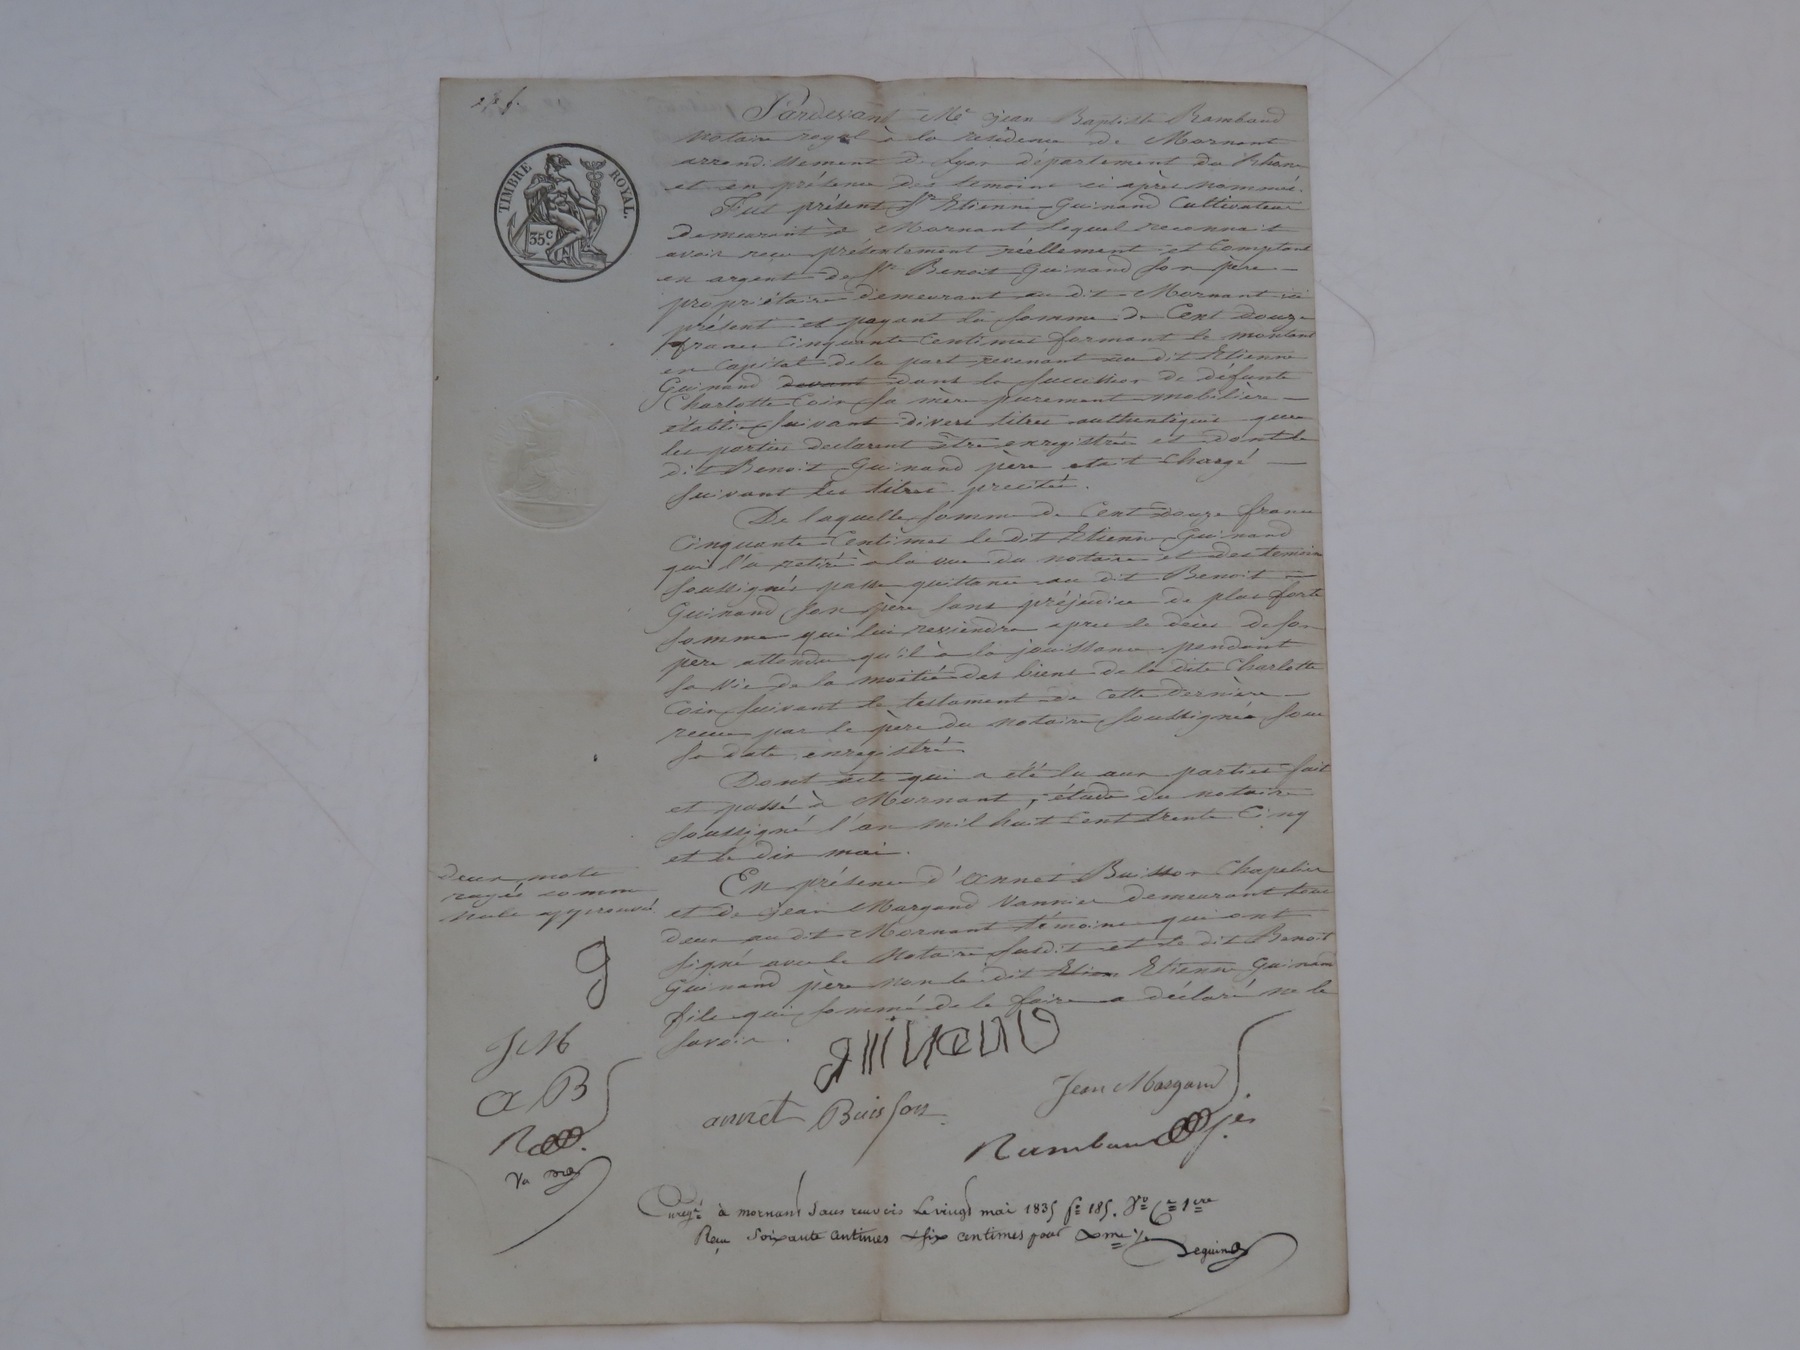 Pardevant Me jean Baptiste Rambaud
notaire royal à la residence de Mornant
arrondissement de Lyon département du Rhône
et en présence des temoins ci après nommés.
TIMBRE ROYAL.
35c.
Fut présent Sr Etienne Guinand Cultivateur
demeurant à Mornant lequel reconnait
avoir reçu présentement réellement et Comptant
en argent de Sr Benoit Guinand son père
propriétaire demeurant au dit Mornant ici
présent et payant la somme de Cent douze
francs Cinquante Centimes formant le montant
en Capital de la part revenant au dit Etienne
Guinand devant dans la succession de défunte
Charlotte Coin sa mère purement mobilière
établie suivant divers titres authentiques que
les parties declarent être enregistrés et dont le
dit Benoit Guinand père etait chargé
suivant les titres precités.
De laquelle somme de Cent douze francs
Cinquante Centimes le dit Etienne Guinand
qui l'a retiré à la vue du notaire et des temoins
soussignés passe quittance au dit Benoit
Guinand son père sans préjudice de plus forte
somme qui lui reviendra apres le décès de son
père attendu qu'il à la jouissance pendant
sa vie de la moitié des biens de la dite Charlotte
Coin suivant le testament de cette dernière
recue par le père du notaire soussigné sous
sa date enregistré.
Dont acte qui a été lu aux parties fait
et passé à Mornant, étude du notaire
soussigné l'an mil huit cent trente Cinq
et le dix mai.
En présence d'annet Buisson Chapelier
et de jean Margand Vannier demeurant tous
deux au dit Mornant témoins qui ont
signé avec le Notaire susdit et le dit Benoit
Guinand père non le dit Etien Etienne Guinand
fils qui sommé de le faire a déclaré ne le
savoir.
deux mots
rayés comme
nuls approuvé
g
JM
a B
R
guinand
Jean Margand
annet Buisson
Rambaud
Enregé à mornant sans renvois Le vingt mai 1835 fo 185. Vo Ce 1ere
Reçu soixante centimes & six centimes pour Dme
Seguin